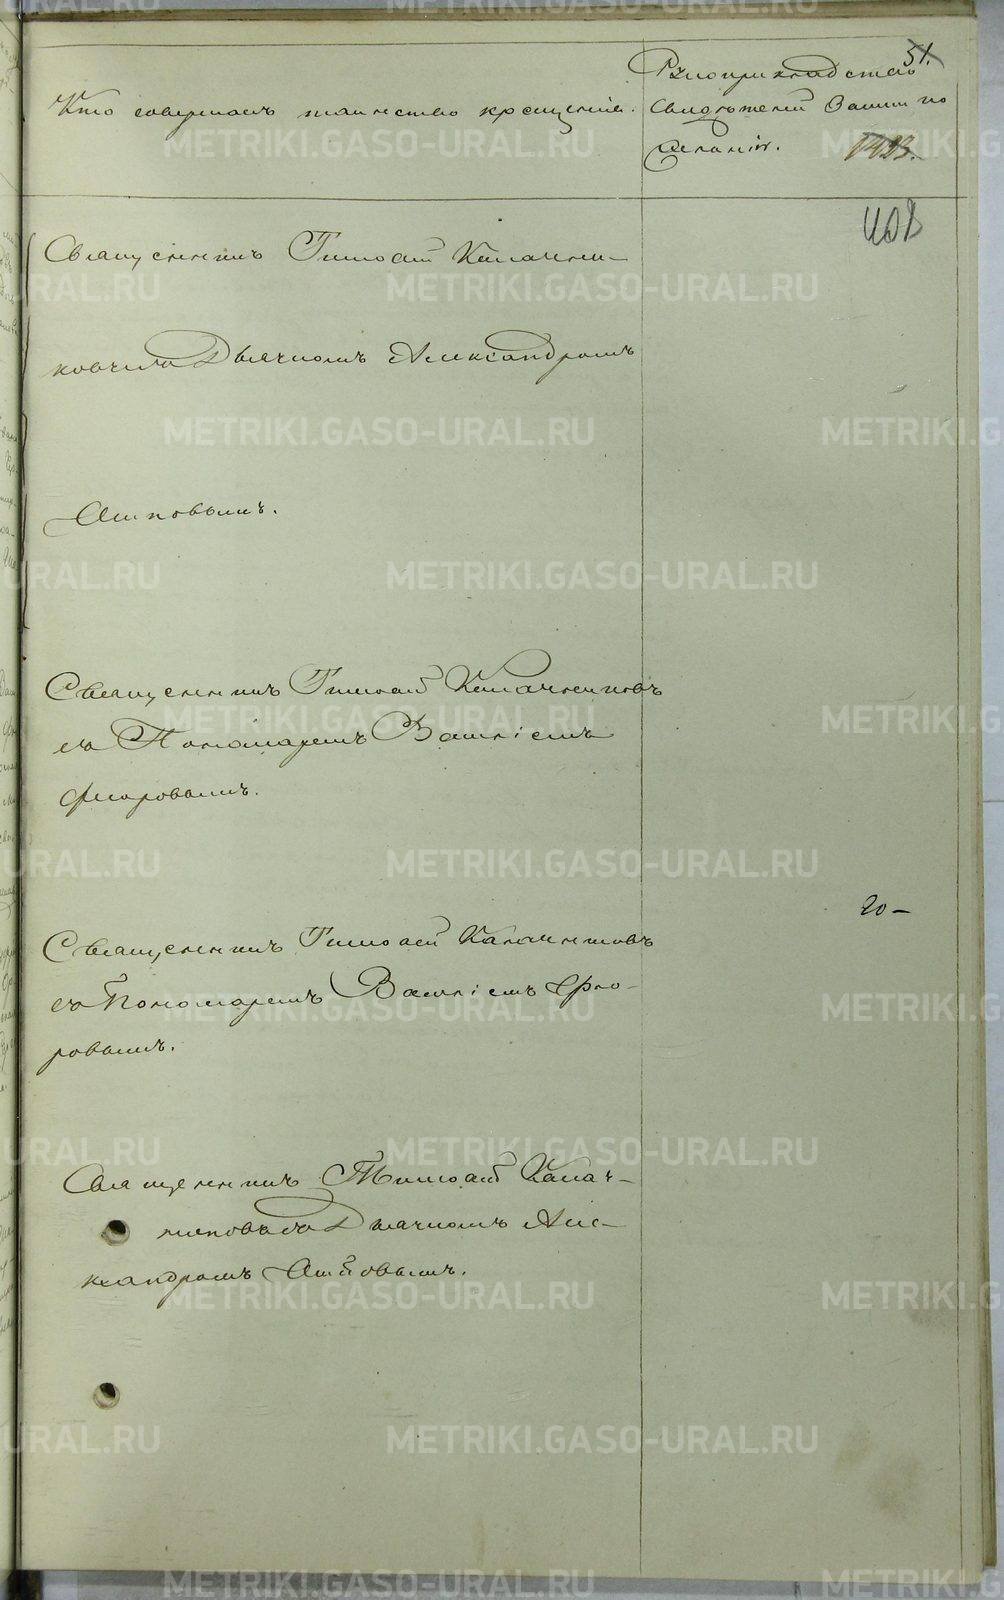 51.
Кто совершалъ таинство крещенія.
Рукоприкладство
свидѣтелей записи по
желанію.
1423.
408
Священникъ Тимофей Калачни-
ковъ съ Дьячкомъ Александромъ
Священникъ Тимофей Калачниковъ
съ Пономаремъ Василіемъ
Флоровымъ.
20-
Священникъ Тимофей Калачниковъ
съ Пономаремъ Василіемъ Фло-
ровымъ.
Священникъ Тимофей Калач-
никовъ съ Дьячкомъ Але-
ксандромъ
METRIKI.GASO-URAL.RU